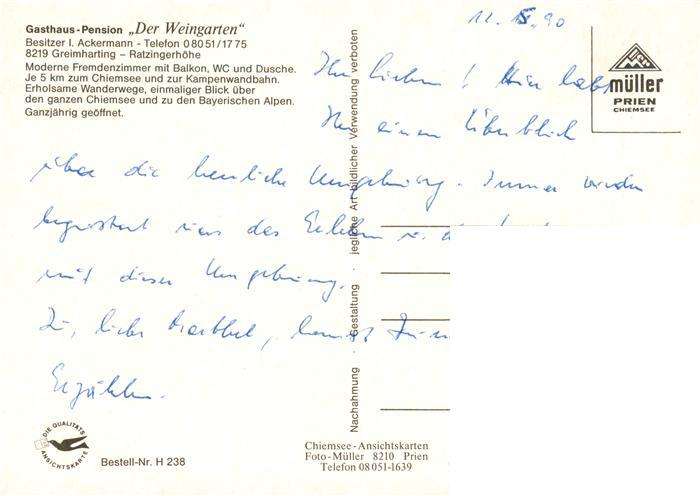 Gasthaus-Pension „Der Weingarten"
Besitzer I. Ackermann - Telefon 0 80 51 / 17 75
8219 Greimharting - Ratzingerhöhe
Moderne Fremdenzimmer mit Balkon, WC und Dusche.
Je 5 km zum Chiemsee und zur Kampenwandbahn.
Erholsame Wanderwege, einmaliger Blick über
den ganzen Chiemsee und zu den Bayerischen Alpen.
Ganzjährig geöffnet.
müller
PRIEN
CHIEMSEE
Ihr lieben! Hier habt
Ihr einen Überblick
über die herrliche Umgebung. Immer wieder
begeistert uns das
mit dieser Umgebung.
liebe
Erzählen.
Nachahmung - Gestaltung jegliche Art bildlicher Verwendung verboten
DIE QUALITÄTS
ANSICHTSKARTE
Bestell-Nr. H 238
Chiemsee-Ansichtskarten
Foto-Müller 8210 Prien
Telefon 08 051-1639